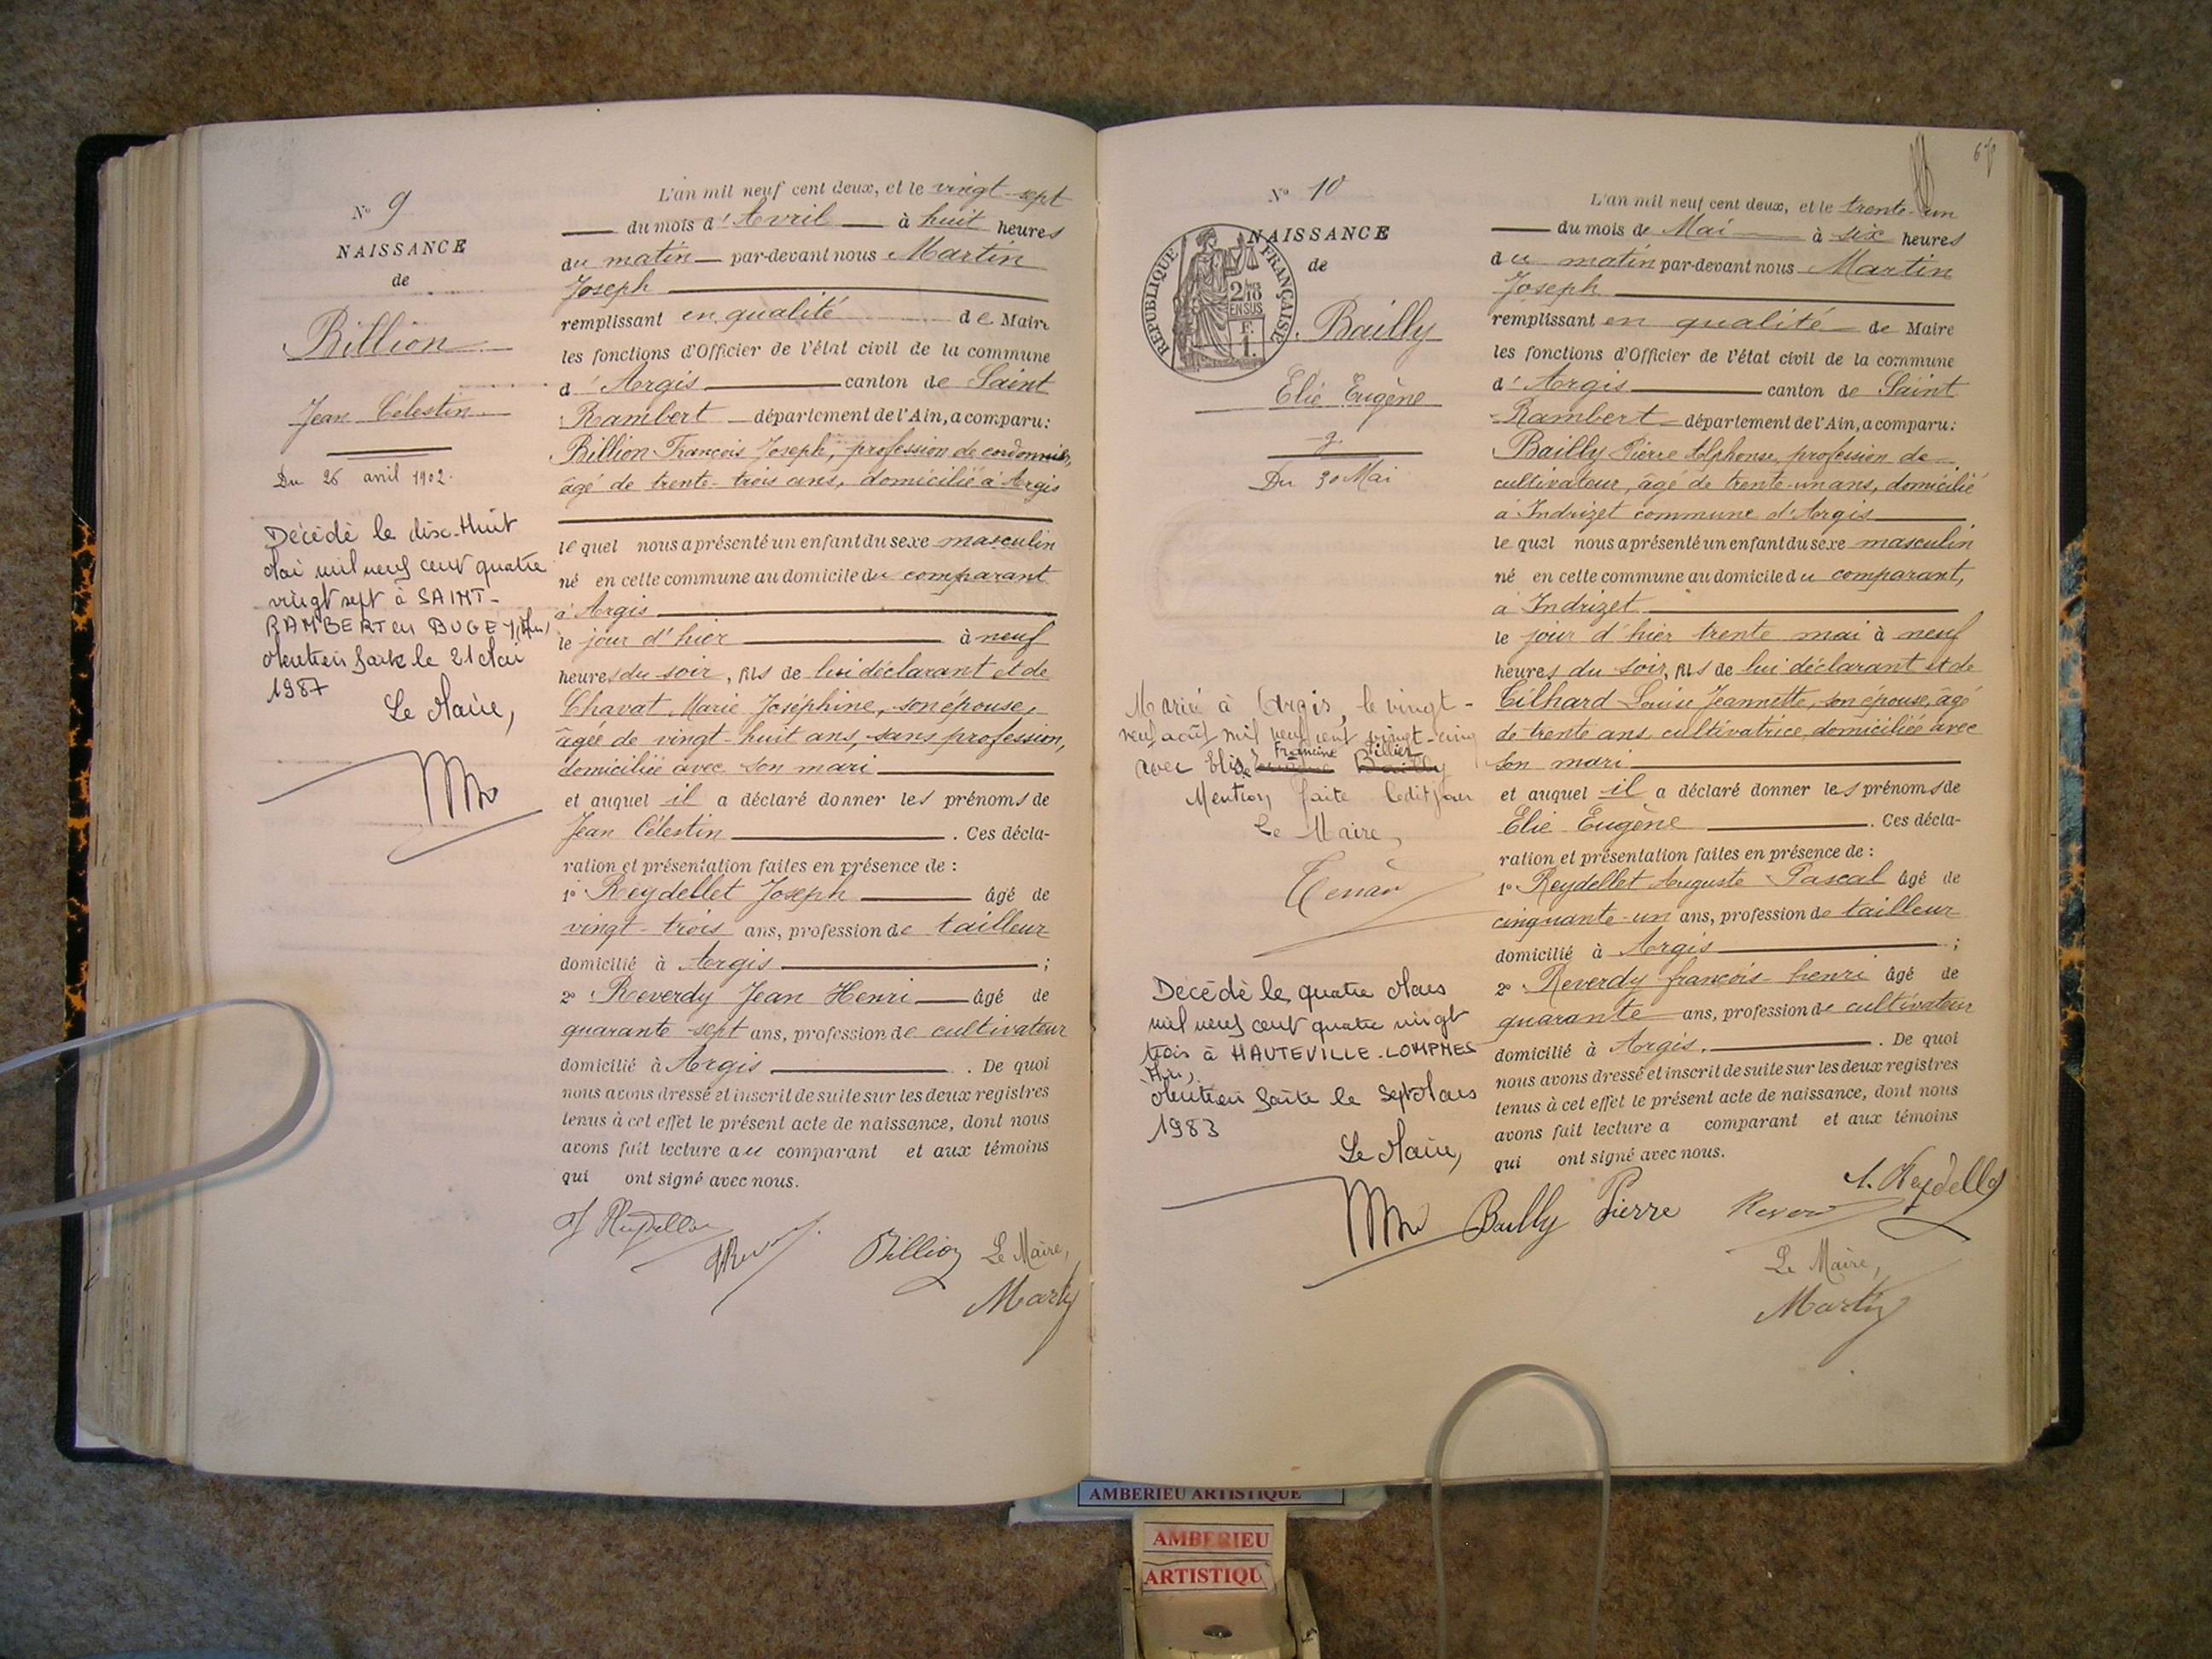 Nº 9
NAISSANCE
de
Billion
Jean Célestin
Du 26 avril 1902.
Décédé le dix-Huit
Mai mil neuf cent quatre
vingt sept à SAINT-
RAMBERT en BUGEY (Ain)
Mention faite le 21 Mai
1987
Le Maire,
L'an mil neuf cent deux, et le vingt-sept
du mois d'Avril à huit heures
du matin par-devant nous Martin
Joseph
remplissant en qualité de Maire
les fonctions d'Officier de l'état civil de la commune
d'Argis canton de Saint
Rambert département de l'Ain, a comparu:
Billion François Joseph, profession de cordonnier,
âgé de trente-trois ans, domicilié à Argis
lequel nous a présenté un enfant du sexe masculin
né en cette commune au domicile du comparant
à Argis
le jour d'hier à neuf
heures du soir, fils de lui déclarant et de
Chavat Marie Joséphine, son épouse,
âgée de vingt-huit ans, sans profession,
domiciliée avec son mari
et auquel il a déclaré donner les prénoms de
Jean Célestin. Ces décla-
ration et présentation faites en présence de :
1º Reydellet Joseph âgé de
vingt-trois ans, profession de tailleur
domicilié à Argis ;
2º Reverdy Jean Henri âgé de
quarante-sept ans, profession de cultivateur
domicilié à Argis. De quoi
nous avons dressé et inscrit de suite sur les deux registres
tenus à cet effet le présent acte de naissance, dont nous
avons fait lecture au comparant et aux témoins
qui ont signé avec nous.
J Reydellet
Billion Le Maire,
Martin
67
Nº 10
NAISSANCE
de
RÉPUBLIQUE FRANÇAISE
2/10 EN SUS
F. 1.
Bailly
Elie Eugène
Du 30 Mai
Marié à Argis, le vingt-
neuf août mil neuf cent vingt-cinq
Francine Tillier
avec Elise Eugène Bailly
Mention faite ledit jour
Le Maire,
Décédé le quatre Mars
mil neuf cent quatre vingt
trois à HAUTEVILLE-LOMPNES
(Ain),
Mention faite le Sept Mars
1983
Le Maire,
L'an mil neuf cent deux, et le trente-un
du mois de Mai à six heures
du matin par-devant nous Martin
Joseph
remplissant en qualité de Maire
les fonctions d'Officier de l'état civil de la commune
d'Argis canton de Saint
-Rambert département de l'Ain, a comparu:
Bailly Pierre Alphonse, profession de
cultivateur, âgé de trente-un ans, domicilié
à Indrizet commune d'Argis
lequel nous a présenté un enfant du sexe masculin
né en cette commune au domicile du comparant,
à Indrizet
le jour d'hier trente mai à neuf
heures du soir, fils de lui déclarant et de
Cilhard Louise Jeannette, son épouse, âgé
de trente ans cultivatrice, domiciliée avec
son mari
et auquel il a déclaré donner les prénoms de
Elie Eugène. Ces décla-
ration et présentation faites en présence de :
1º Reydellet Auguste Pascal âgé de
cinquante-un ans, profession de tailleur
domicilié à Argis ;
2º Reverdy françois henri âgé de
quarante ans, profession de cultivateur
domicilié à Argis. De quoi
nous avons dressé et inscrit de suite sur les deux registres
tenus à cet effet le présent acte de naissance, dont nous
avons fait lecture a comparant et aux témoins
qui ont signé avec nous.
Bailly Pierre A. Reydellet
Le Maire,
Martin
AMBERIEU ARTISTIQUE
AMBERIEU
ARTISTIQU